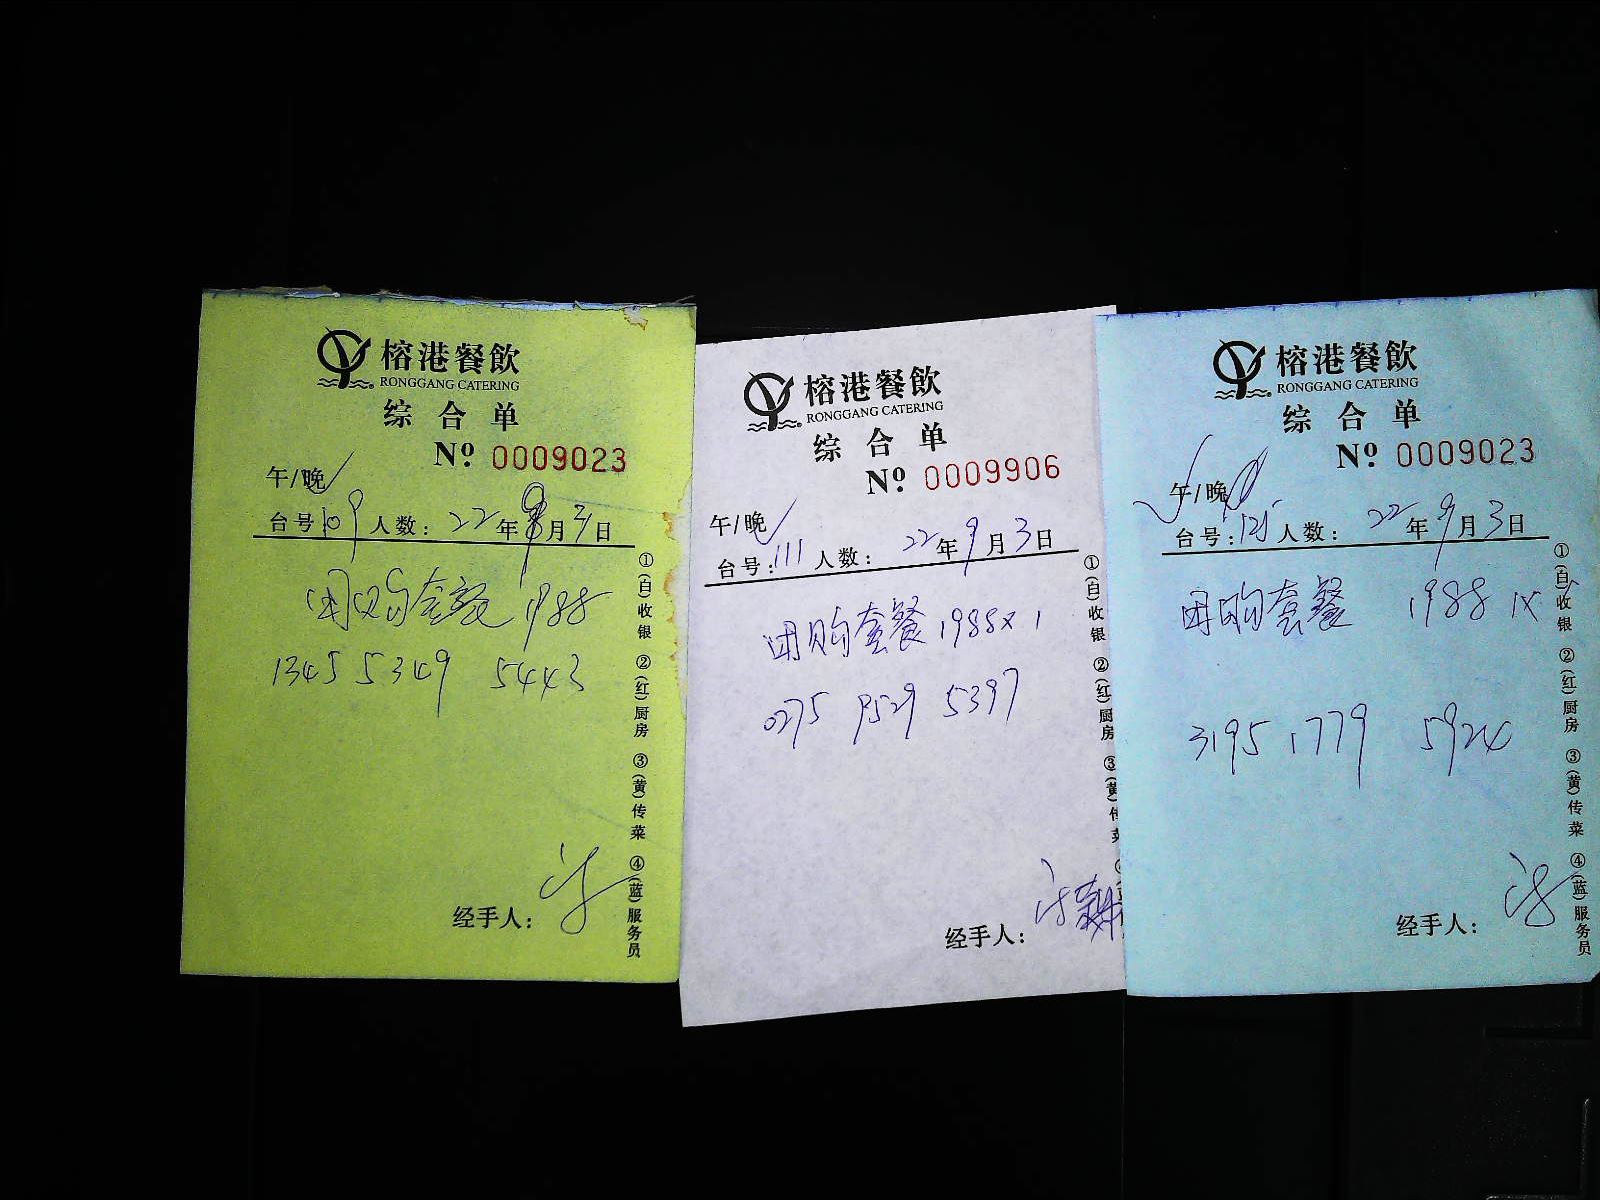 榕港餐飲
RONGGANG CATERING
综合单
Nº 0009023
午/晚✓
台号109 人数: 22年9月3日
团购套餐 1988
1345 5349 5443
经手人:
①(白)收银 ②(红)厨房 ③(黄)传菜 ④(蓝)服务员
榕港餐飲
RONGGANG CATERING
综合单
Nº 0009906
午/晚✓
台号:111 人数: 22年9月3日
团购套餐 1988×1
0275 9529 5397
经手人:
①(白)收银 ②(红)厨房 ③(黄)传菜
榕港餐飲
RONGGANG CATERING
综合单
Nº 0009023
午/晚
台号:125 人数: 22年9月3日
团购套餐 1988 1×
3195 1779 5924
经手人:
①(白)收银 ②(红)厨房 ③(黄)传菜 ④(蓝)服务员